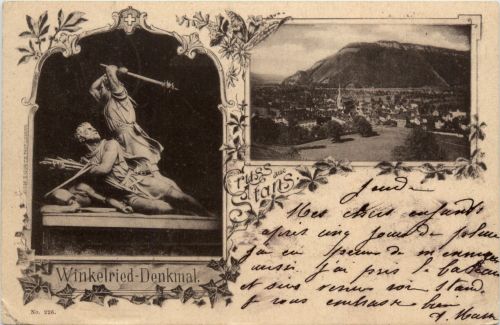 Gruss aus
Stans.
Winkelried-Denkmal.
No. 226.
Jeudi
Mes chers enfants
après cinq jours de pluie
j'ai eu peur de m'ennuyer
aussi j'ai pris le bateau
et suis venue voir Stans
vous embrasse bien